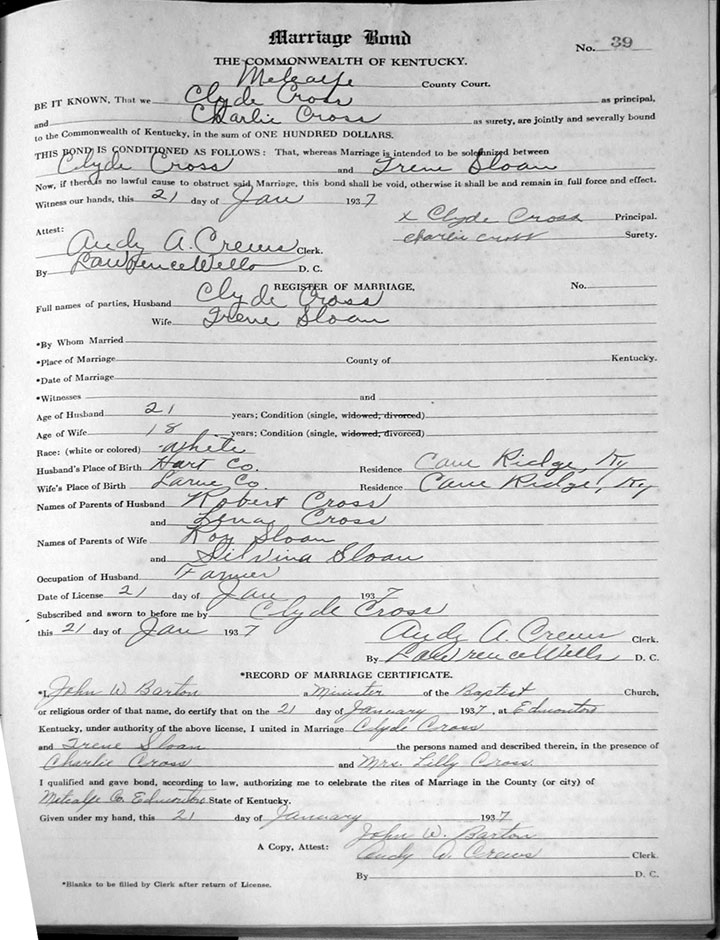 Marriage Bond
No. 39
THE COMMONWEALTH OF KENTUCKY.
Metcalfe County Court.
BE IT KNOWN, That we Clyde Cross as principal,
and Charlie Cross as surety, are jointly and severally bound
to the Commonwealth of Kentucky, in the sum of ONE HUNDRED DOLLARS.
THIS BOND IS CONDITIONED AS FOLLOWS: That, whereas Marriage is intended to be solemnized between
Clyde Cross and Irene Sloan
Now, if there is no lawful cause to obstruct said Marriage, this bond shall be void, otherwise it shall be and remain in full force and effect.
Witness our hands, this 21 day of Jan 1937
x Clyde Cross Principal.
Attest: Charlie Cross Surety.
Andy A. Crews Clerk.
By Lawrence Wells D. C.
REGISTER OF MARRIAGE. No.
Full names of parties, Husband Clyde Cross
Wife Irene Sloan
*By Whom Married
*Place of Marriage County of Kentucky.
*Date of Marriage
*Witnesses and
Age of Husband 21 years; Condition (single, widowed, divorced)
Age of Wife 18 years; Condition (single, widowed, divorced)
Race: (white or colored) white
Husband's Place of Birth Hart Co. Residence Cane Ridge, Ky
Wife's Place of Birth Larue Co. Residence Cane Ridge, Ky
Names of Parents of Husband Robert Cross
and Lena Cross
Names of Parents of Wife Roy Sloan
and Silvina Sloan
Occupation of Husband Farmer
Date of License 21 day of Jan 1937
Subscribed and sworn to before me by Clyde Cross
this 21 day of Jan 1937 Andy A. Crews Clerk.
By Lawrence Wells D. C.
*RECORD OF MARRIAGE CERTIFICATE.
*I, John W Barton a Minister of the Baptist Church,
or religious order of that name, do certify that on the 21 day of January 1937, at Edmonton
Kentucky, under authority of the above license, I united in Marriage Clyde Cross
and Irene Sloan the persons named and described therein, in the presence of
Charlie Cross and Mrs. Lilly Cross.
I qualified and gave bond, according to law, authorizing me to celebrate the rites of Marriage in the County (or city) of
Metcalfe Co. Edmonton State of Kentucky.
Given under my hand, this 21 day of January 1937
John W. Barton
A Copy, Attest: Andy A. Crews Clerk.
By D. C.
*Blanks to be filled by Clerk after return of License.